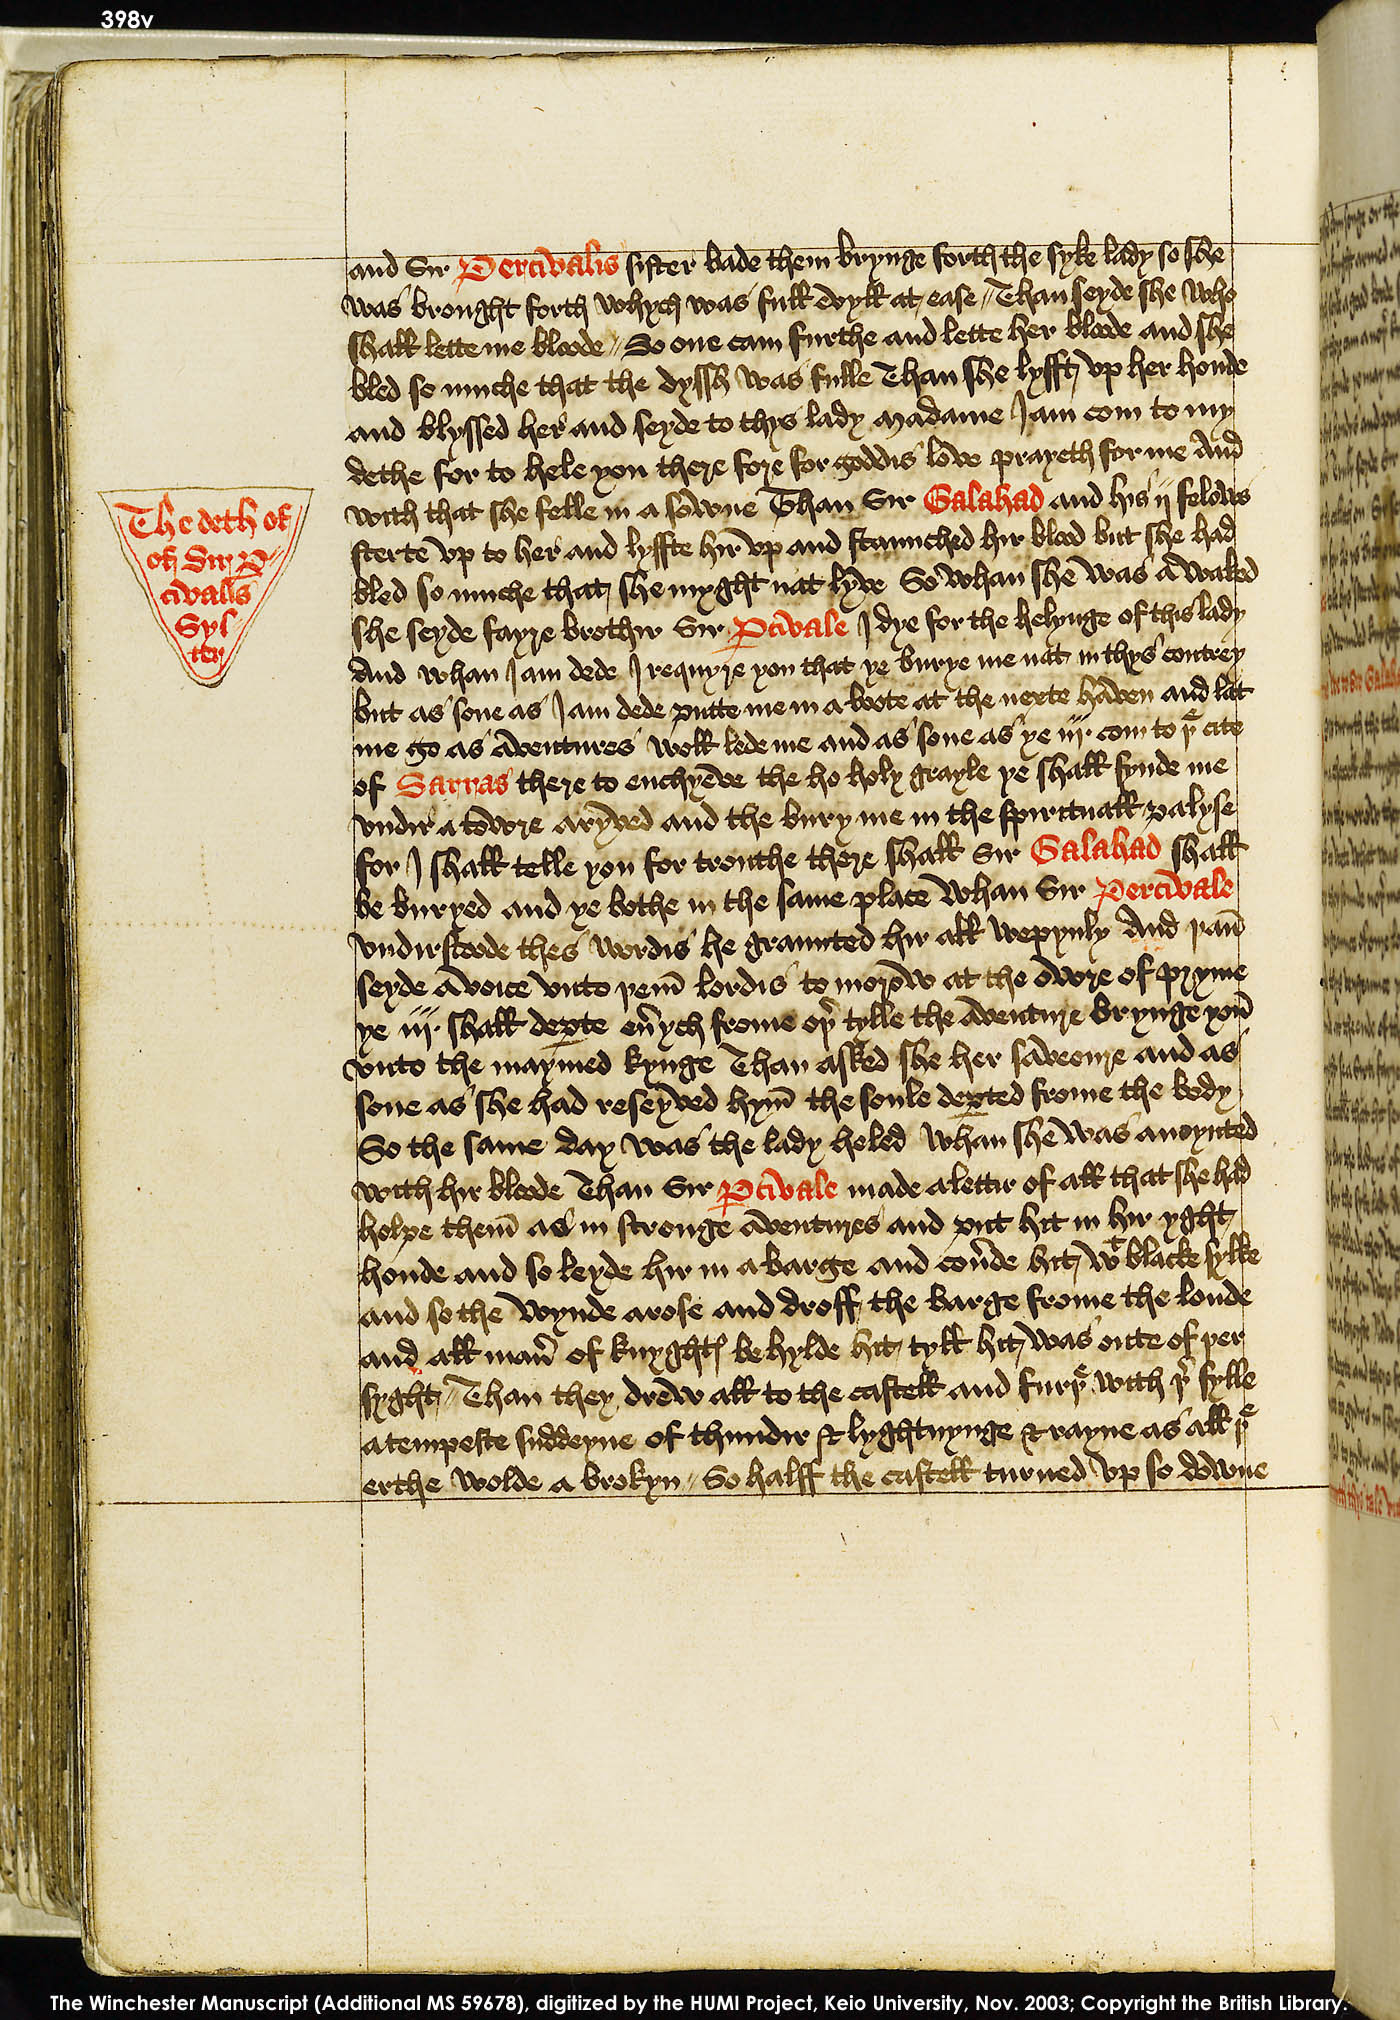 398v
and Sir Percivalis sister bade them brynge forth the syke lady so she
was brought forth whych was full evyll at ease // Than seyde she who
shall lette me bloode // So one cam furthe and lette her bloode and she
bled so muche that the dyssh was fulle Than she lyfft up her honde
and blyssed her and seyde to thys lady Madame I am com to my
dethe for to hele you there fore for goddis love prayeth for me And
with that she felle in a sowne Than Sir Galahad and his ij felows
sterte up to her and lyffte hir up and staunched hir blood but she had
bled so muche that she myght nat lyve So whan she was awaked
she seyde fayre brothir Sir Pcivale I dye for the helynge of this lady
And whan I am dede I requyre you that ye burye me nat in thys contrey
but as sone as I am dede putte me in a boote at the nexte haven and lat
me go as aventures woll lede me and as sone as ye iij com to þe cite
of Sarras there to enchyeve the ho holy grayle ye shall fynde me
undir a towre aryved and the bury me in the spirituall palyse
for I shall telle you for trouthe there shall Sir Galahad shall
be buryed and ye bothe in the same place Whan Sir Percivale
undirstoode thes wordis he graunted hir all wepynly And þan
seyde a voice unto þem lordis to morow at the owre of pryme
ye iij shall depte eūych frome oþ tylle the aventure brynge you
unto the maymed kynge Than asked she her saveoure and as
sone as she had reseyved hym the soule depted frome the body
So the same day was the lady heled whan she was anoynted
with hir bloode Than Sir Pcivale made a lettir of all that she had
holpe them as in stronge aventures and put hit in hir ryght
honde and so leyde hir in a barge and coūde hit wt blacke sylke
and so the wynde arose and droff the barge frome the londe
and all man of knyghtes behylde hit tyll hit was oute of þer
syght // Than they drew all to the castell and furþe with þer fylle
a tempeste suddeyne of thundir & lyghtnynge & rayne as all þe
erthe wolde a brokyn // So halff the castell turned up so downe
The deth of
of Sir P
civalis
Sys
ter
The Winchester Manuscript (Additional MS 59678), digitized by the HUMI Project, Keio University, Nov. 2003; Copyright the British Library.